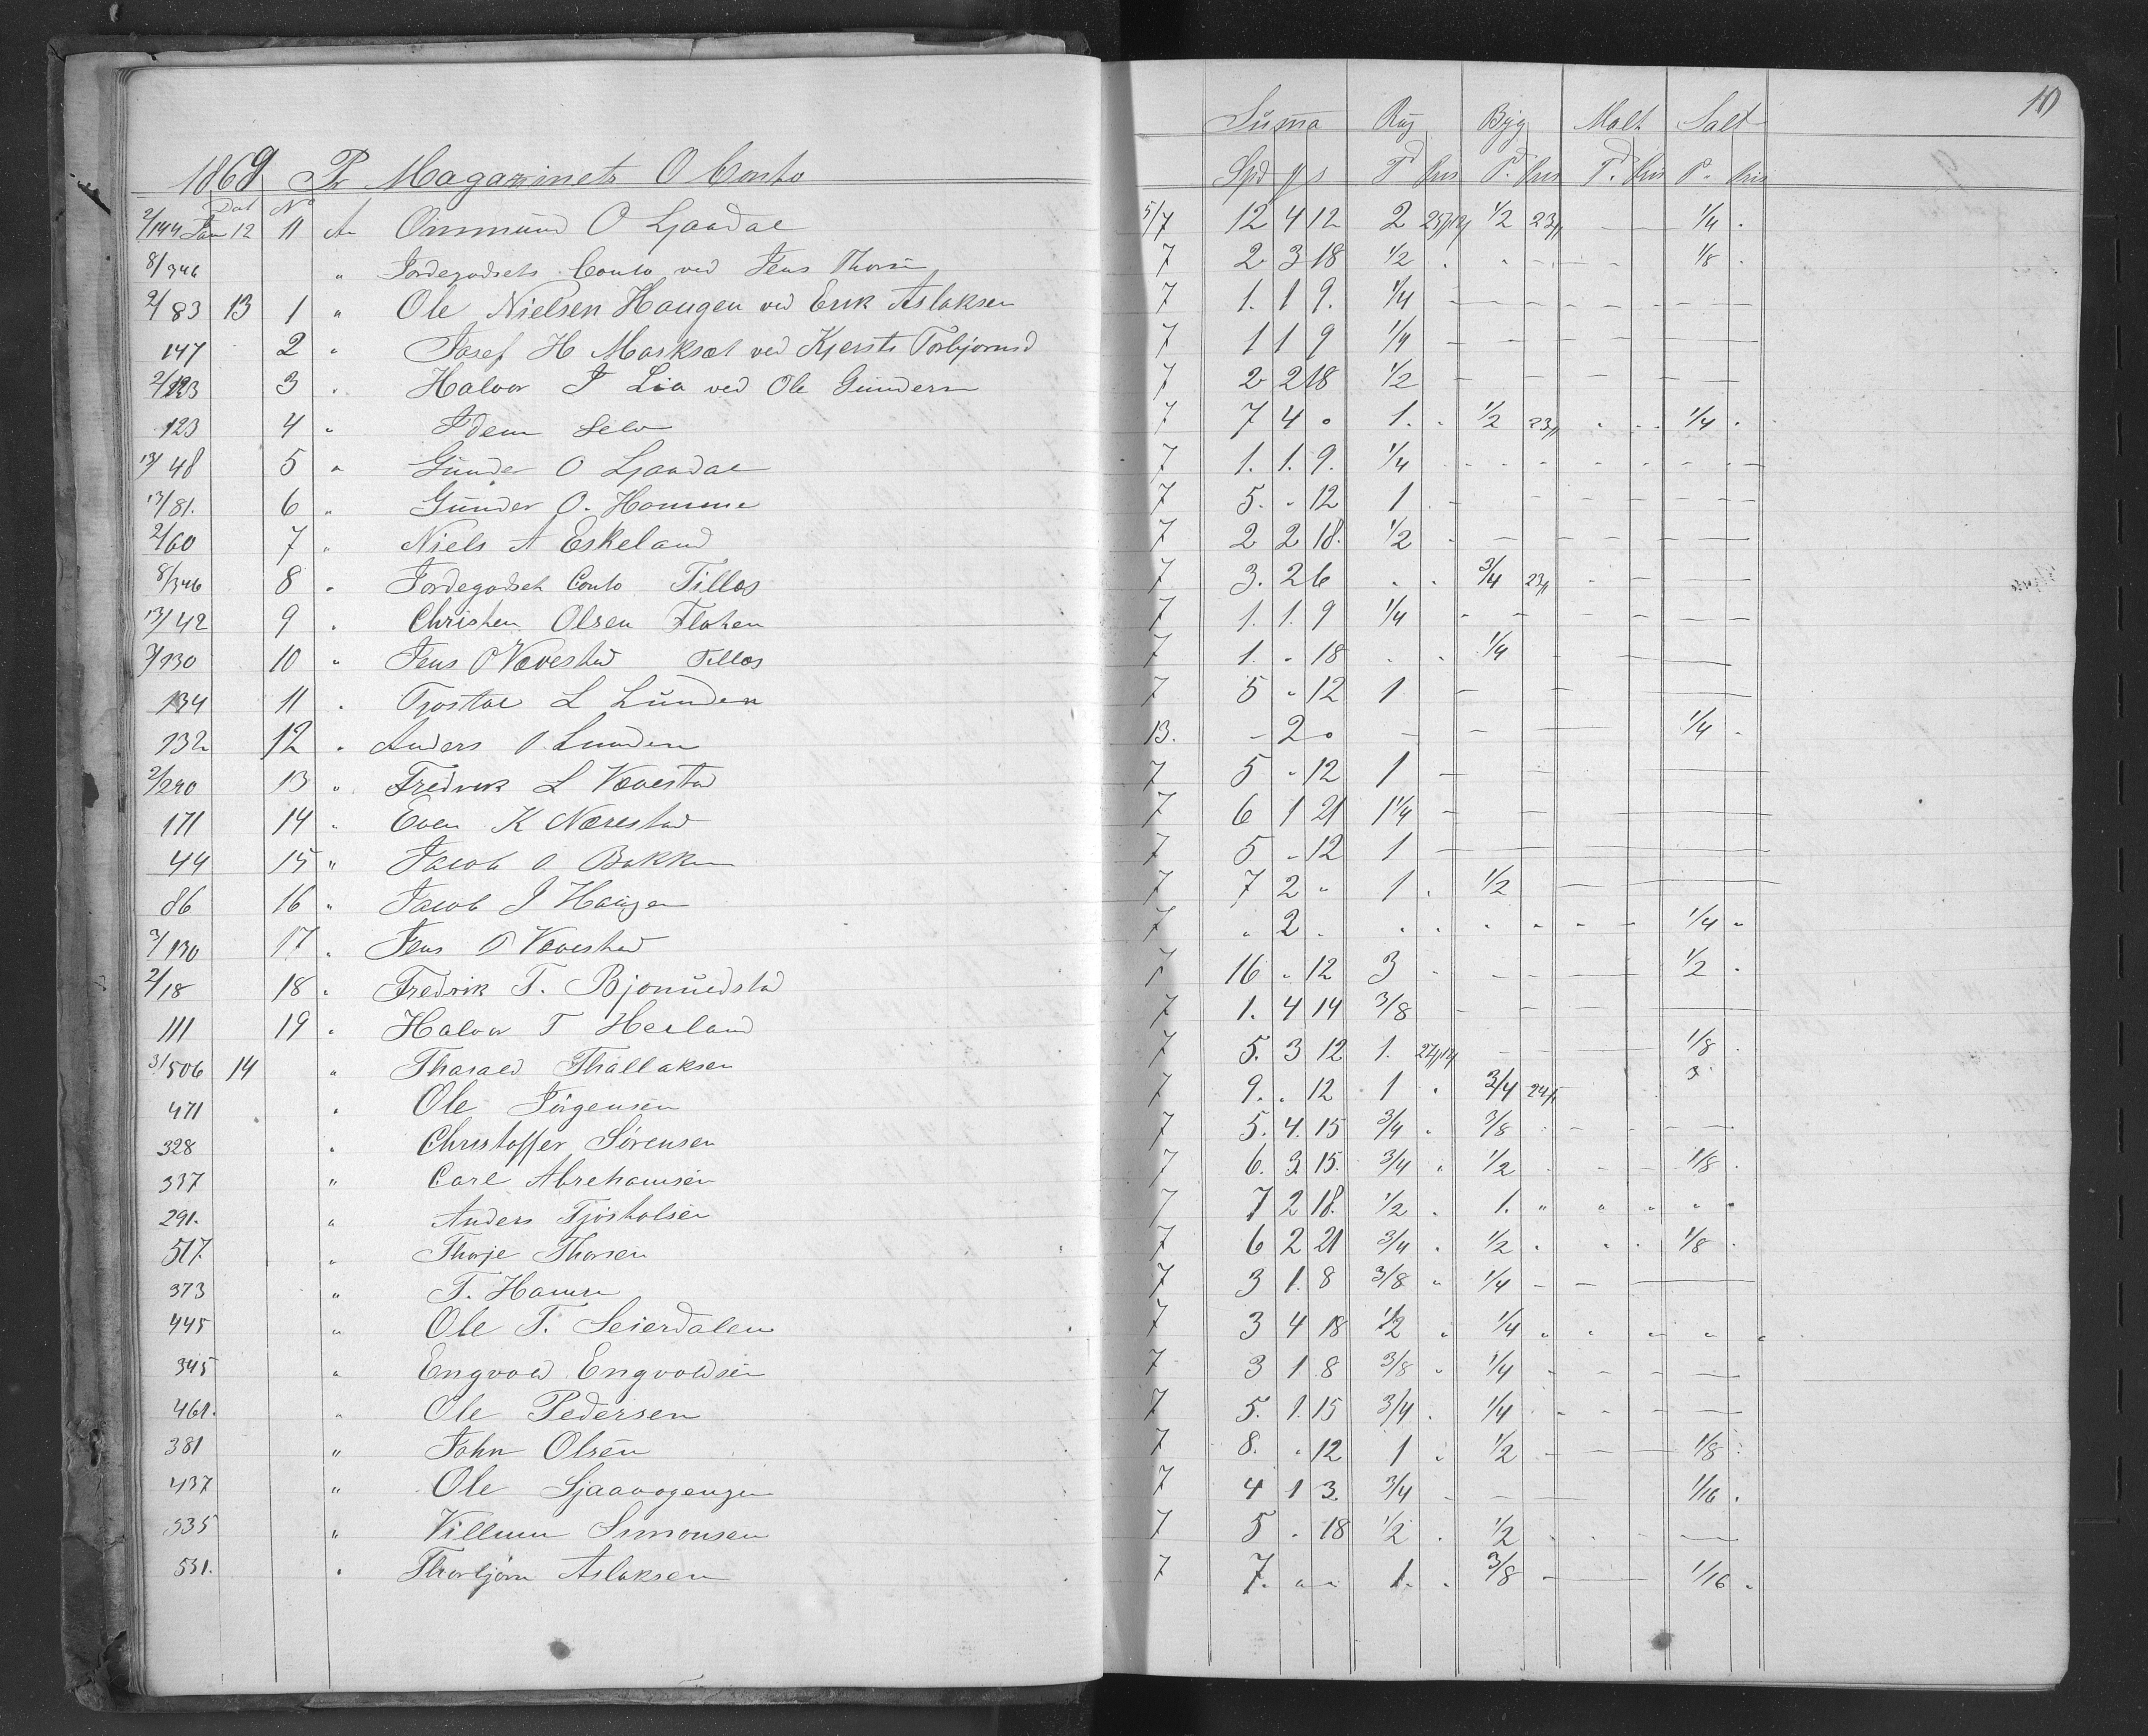 10
Suma Rug Byg Malt Salt
1869 Pr Magazinets O Conto Spd P. Pris P. Pris P.
Dat No
2/144 Jan 12 11 An Ommund O Ljaadal 5/7 12 4 12 2 1/2 23 1/4
8/346 " Jordegodsets Conto ved Jens Thorsen 7 2 3 18 1/2 1/8
2/83 13 1 " Ole Nielsen Haugen ved Erik Aslaksen 7 1. 1 9. 1/4
147 2 " Josef H Marksæt ved Kjersti Torbjornsd 7 1 1 9 1/4
2/123 3 " Halvor J Lia ved Ole Gundersn 7 2 2 18 1/2
123 4 " Idem Selv 7 7 4 0 1. 1/2 23 1/4
13/48 5 " Gunder O Ljaadal 7 1. 1. 9. 1/4
13/81. 6 " Gunder O. Homme 7 5. " 12 1
2/60 7 " Niels A Eskeland 7 2 2 18. 1/2
8/346 8 " Jordegodset Conto Tillæg 7 3. 2 6 3/4 23
13/42 9 " Christen Olsen Flaten 7 1. 1. 9 1/4
3/130 10 " Jens O Vævestad Tillæg 7 1. " 18 1/4
134 11 " Tjostol L Lunden 7 5 " 12 1
132 12 " Anders O Lunden 13. - 2 0 1/4
2/290 13 " Fredrik L Vævestad 7 5 " 12 1
171 14 " Even K Nærestad 7 6 1 21 1 1/4
44 15 " Jacob O Bakken 7 5 " 12 1
86 16 " Jacob J Haugen 7 7 2 " 1 1/2
3/130 17 " Jens O Vævestad 7 " 2 " 1/4
2/18 18 " Fredrik T. Bjornuldstad 7 16 " 12 3 1/2
111 19 " Halvor T Herland 7 1. 4 14 3/8
3/506 14 " Tharald Thallaksen 7 5. 3 12 1. 1/8
471 " Ole Jörgensen 7 9. " 12 1 3/4 24 3
328 " Christoffer Sörensen 7 5. 4. 15 3/4 3/8
337 " Carl Abrehamsen 7 6. 3 15. 3/4 1/2 1/8
291. " Anders Tjöstolsen 7 7 2 18. 1/2 1.
517. " Thorje Thorsen 7 6 2 21 3/4 1/2 1/8
373 " T. Hansen 7 3 1. 8 3/8 1/4
445 " Ole T. Seierdalen 7 3 4 18 1/2 1/4
345 " Engvold Engvoldsen 7 3 1 8 3/8 1/4
461. " Ole Pedersen 7 5. 1. 15 3/4 1/4
381 " John Olsen 7 8. " 12 1 1/2 1/8
437 " Ole 7 4 1 3 3/4 1/16
535 " Villum Simonsen 7 5 " 18 1/2 1/2
531. " Thorbjörn Aslaksen 7 7. " " 1. 3/8 1/16